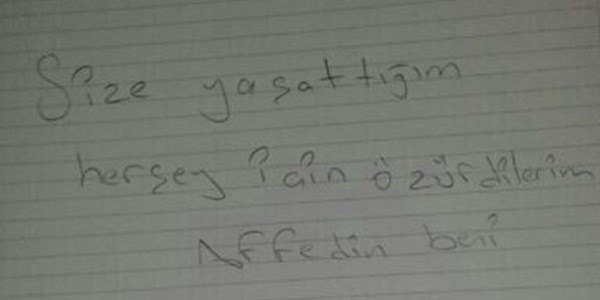 Size yaşattığım
herşey için özürdilerim
Affedin beni